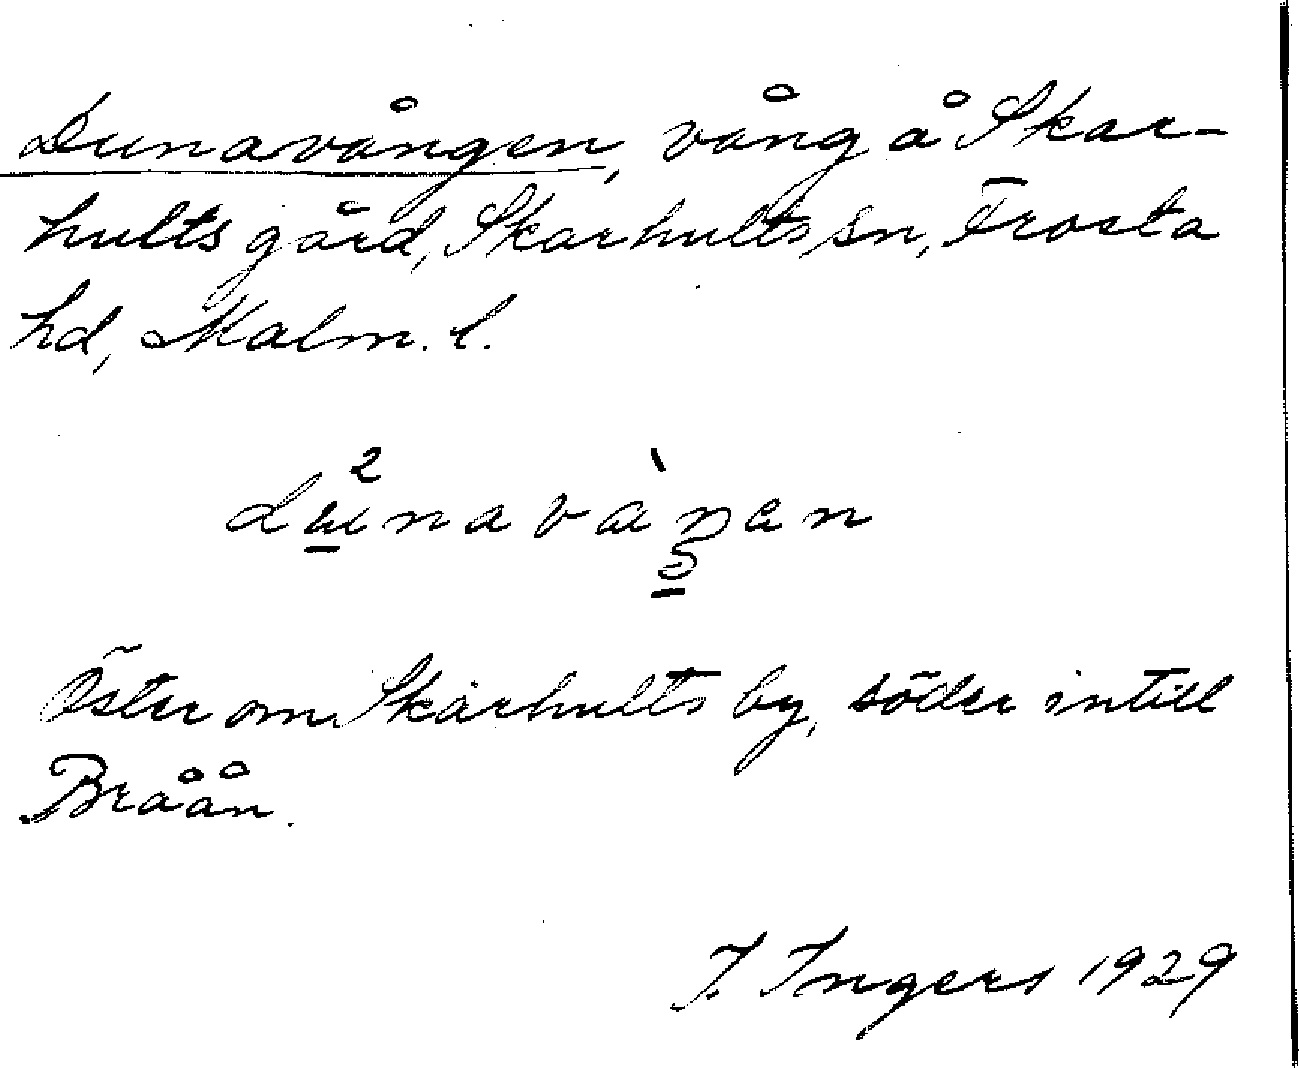 Dunavången, vång å Skar-
hults gård, Skarhults sn, Frosta
hd, Malm. l.
Öster om Skarhults by, söder intill
Bråån.
I. Ingers 1929